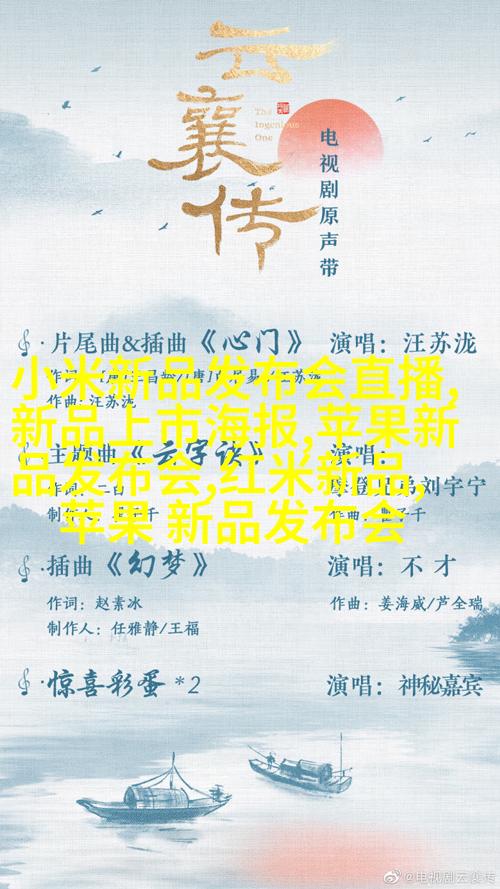 云襄传
The
Ingenious
One
电视剧原声带
片尾曲&插曲《心门》 演唱：汪苏泷
作曲：汪苏泷
小米新品发布会直播,
新品上市海报,苹果新
品发布会,红米新品,
苹果 新品发布会
主题曲《云字诀》 演唱：
摩登兄弟刘宇宁
插曲《幻梦》 演唱：不才
作词：赵素冰 作曲：姜海威/芦全瑞
制作人：任雅静/王福
惊喜彩蛋 *2 演唱：神秘嘉宾
@电视剧云襄传